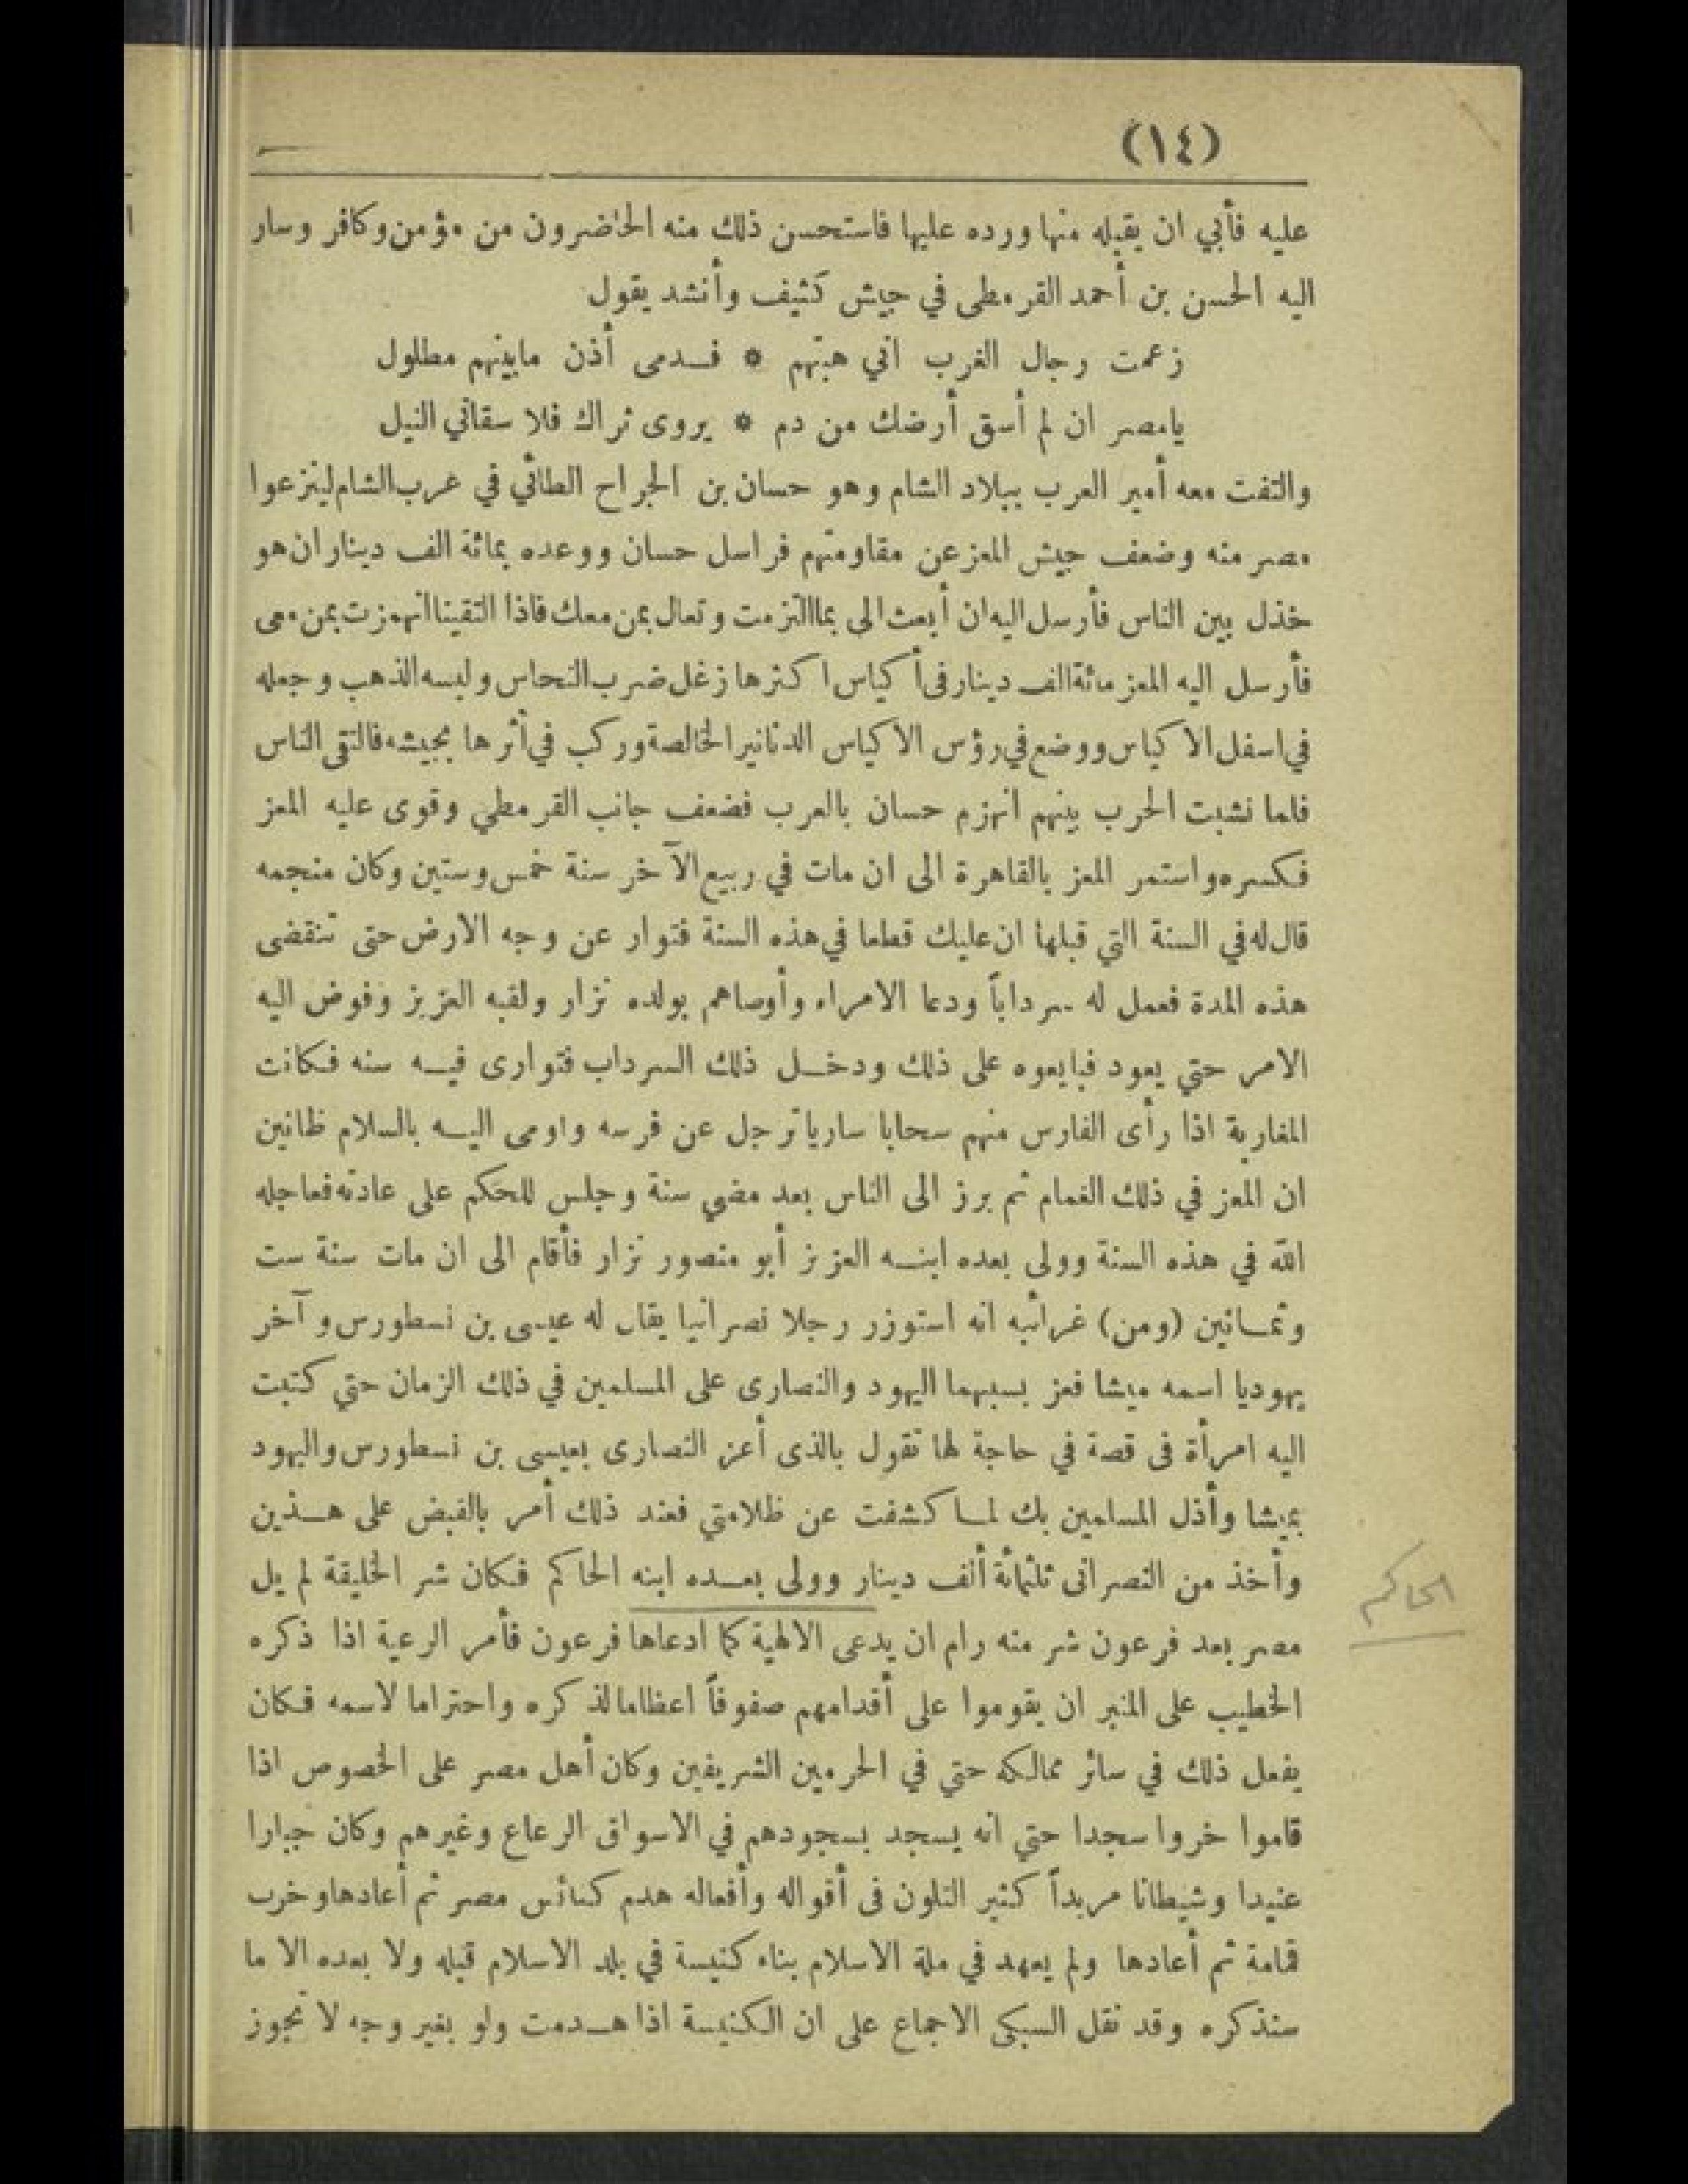 (١٤)
عليه فأبي ان يقبله منها ورده عليها فاستحسن ذلك منه الحاضرون من مؤمن وكافر وسار
اليه الحسن بن أحمد القرمطى في جيش كثيف وأنشد يقول
زعمت رجال الغرب اني هبتهم * فــدمى أذن مابينهم مطلول
يامصر ان لم أسق أرضك من دم * يروى ثراك فلا سقاني النيل
والتفت معه أمير العرب ببلاد الشام وهو حسان بن الجراح الطائي في عرب الشام لينزعوا
مصر منه وضعف جيش المعز عن مقاومتهم فراسل حسان ووعده بمائة الف دينار ان هو
خذل بين الناس فأرسل اليه ان أبعث الى بما التزمت وتعال بمن معك فاذا التقينا انهزمت بمن معى
فأرسل اليه المعز مائة الف دينار فى أكياس اكثرها زغل ضرب النحاس ولبسه الذهب وجعله
في اسفل الاكياس ووضع في رؤس الاكياس الدنانير الخالصة وركب في أثرها بجيشه فالتقى الناس
فلما نشبت الحرب بينهم انهزم حسان بالعرب فضعف جانب القرمطي وقوى عليه المعز
فكسره واستمر المعز بالقاهرة الى ان مات في ربيع الآخر سنة خمس وستين وكان منجمه
قال له في السنة التي قبلها ان عليك قطعا في هذه السنة فتوار عن وجه الارض حتى تنقضى
هذه المدة فعمل له سرداباً ودعا الامراء وأوصاهم بولده نزار ولقبه العزيز وفوض اليه
الامر حتي يعود فبايعوه على ذلك ودخــل ذلك السرداب فتوارى فيــه سنه فكانت
المغاربة اذا رأى الفارس منهم سحابا ساريا ترجل عن فرسه واومى اليــه بالسلام ظانين
ان المعز في ذلك الغمام ثم برز الى الناس بعد مضي سنة وجلس للحكم على عادته فعاجله
الله في هذه السنة وولى بعده ابنــه العزيز أبو منصور نزار فأقام الى ان مات سنة ست
وثمــانين (ومن) غرائبه انه استوزر رجلا نصرانيا يقال له عيسى بن نسطورس وآخر
يهوديا اسمه ميشا فعز بسببهما اليهود والنصارى على المسلمين في ذلك الزمان حتي كتبت
اليه امرأة فى قصة في حاجة لها تقول بالذى أعز النصارى بعيسى بن نسطورس واليهود
بميشا وأذل المسلمين بك لمــا كشفت عن ظلامتي فعند ذلك أمر بالقبض على هــذين
وأخذ من النصرانى ثلثمائة ألف دينار وولى بعــده ابنه الحاكم فكان شر الخليقة لم يل
الحاكم
مصر بعد فرعون شر منه رام ان يدعى الالهية كما ادعاها فرعون فأمر الرعية اذا ذكره
الخطيب على المنبر ان يقوموا على أقدامهم صفوفاً اعظاما لذكره واحتراما لاسمه فكان
يفعل ذلك في سائر ممالكه حتي في الحرمين الشريفين وكان أهل مصر على الخصوص اذا
قاموا خروا سجدا حتي انه يسجد بسجودهم في الاسواق الرعاع وغيرهم وكان جبارا
عنيدا وشيطانا مريداً كثير التلون فى أقواله وأفعاله هدم كنائس مصر ثم أعادها وخرب
قمامة ثم أعادها ولم يعهد في ملة الاسلام بناء كنيسة في بلد الاسلام قبله ولا بعده الا ما
سنذكره وقد نقل السبكى الاجماع على ان الكنيسة اذا هــدمت ولو بغير وجه لا تجوز